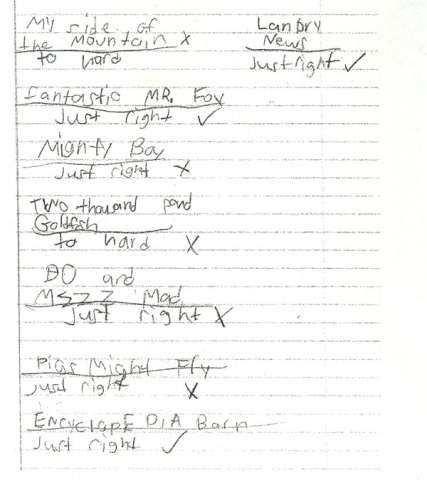 My side of
the Mountain x
to hard
Landry
News
Just right ✓
Fantastic MR. Fox
Just right ✓
Mighty Boy
Just right x
Two thousand pond
Goldfish
to hard x
DO and
Mad
Just right x
Pigs Might Fly
Just right
x
ENCYCLOPEDIA Barn
Just right ✓